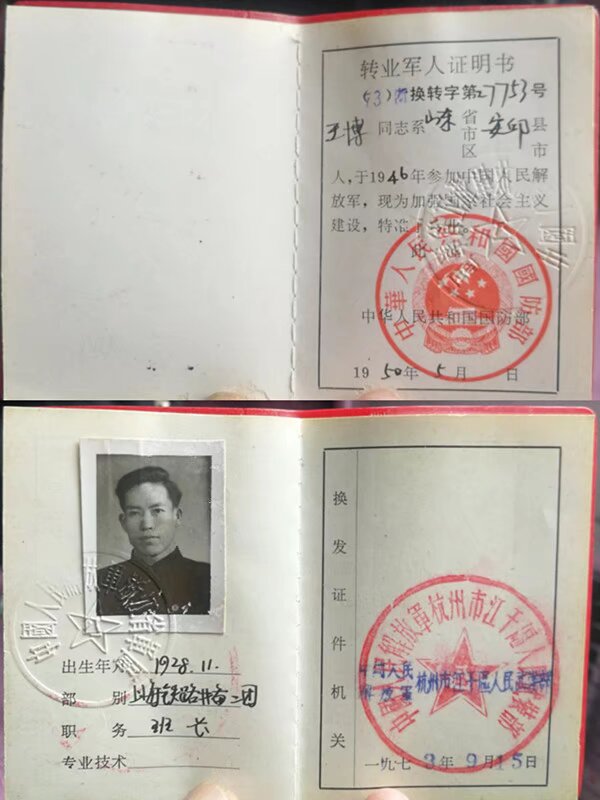 转业军人证明书
(53)浙换转字第27753号
王博同志系山东省市区安邱县市
人,于1946年参加中国人民解
放军,现为加强国家社会主义
建设,特准予转业。
中华人民共和国国防部
中華人民共和國國防部
1950年5月 日
出生年月 1928.11.
部别
职务 班长
专业技术
换发证件机关
中国人民解放军杭州市江干區人民武装部
中国人民解放军杭州市江干區人民武装部
一九七3年9月15日